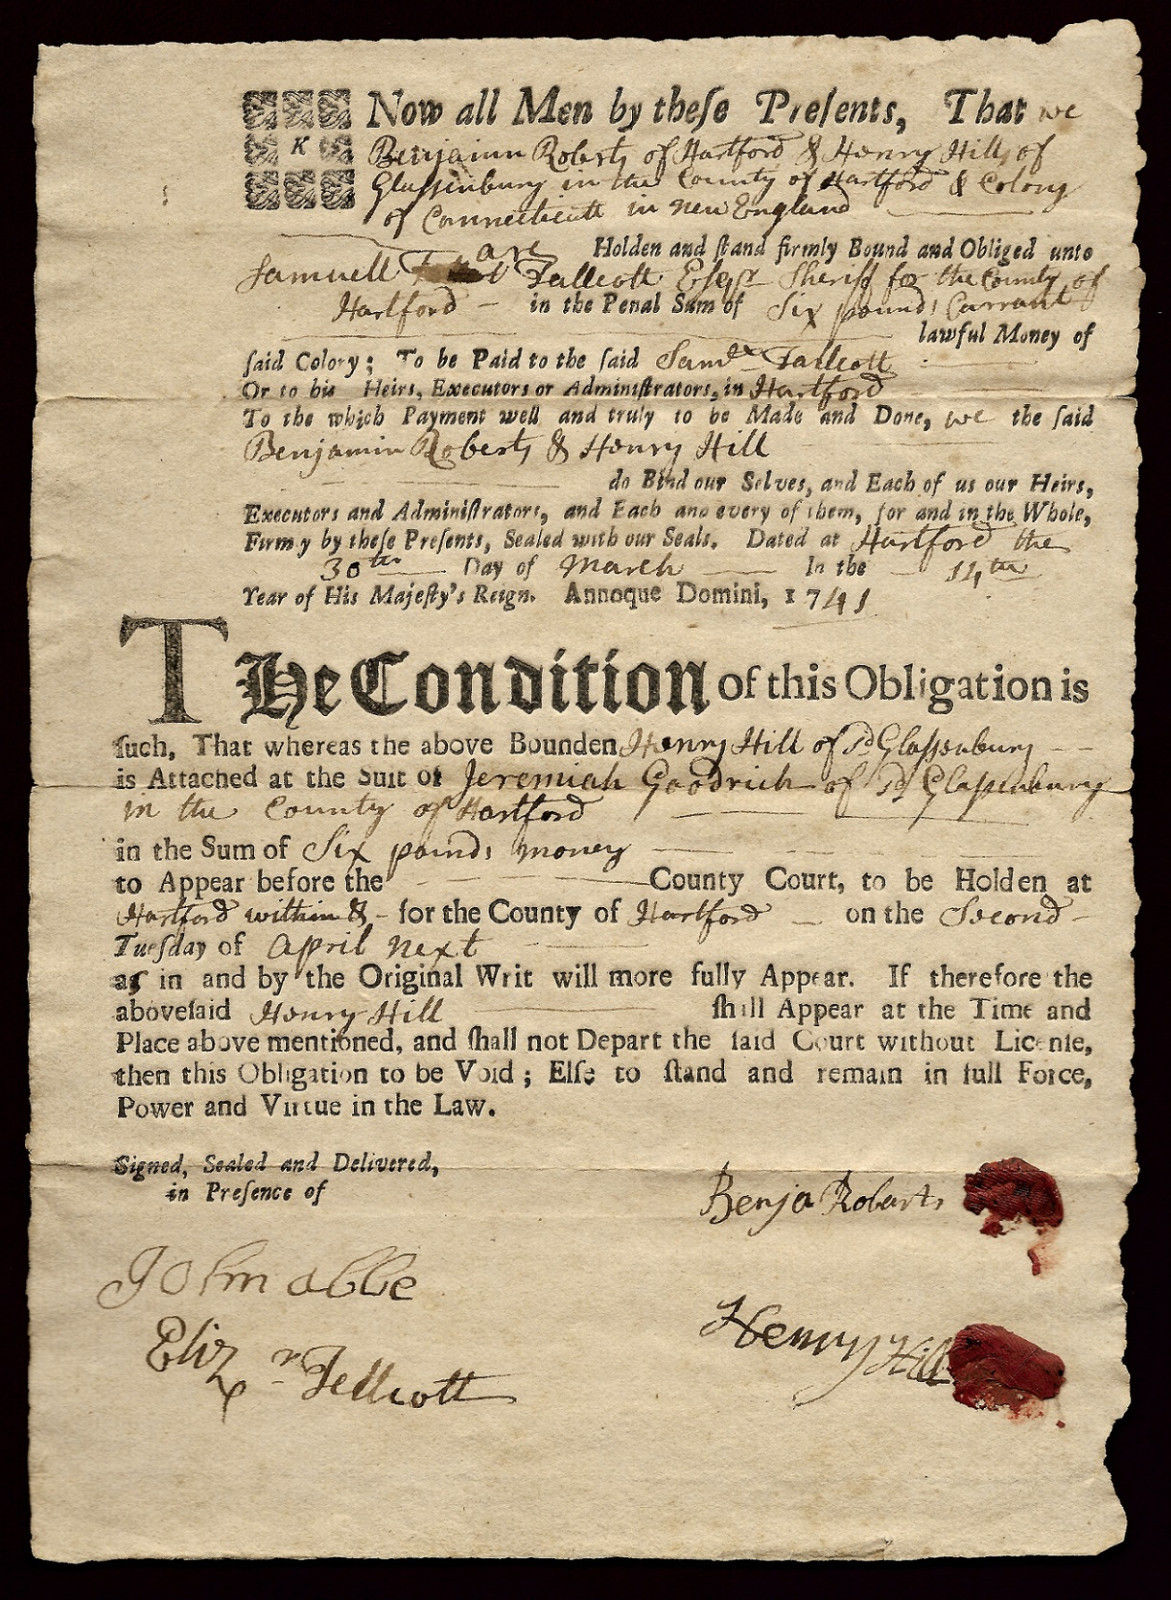 KNow all Men by theſe Preſents, That we
Benjamin Roberts of Hartford & Henry Hill of
Glassenbury in the County of Hartford & Colony
of Connecticutt in New England
are Holden and ſtand firmly Bound and Obliged unto
Samuell Tallcott Esqr Sheriff for the County of
Hartford in the Penal Sum of Six pounds Currant
lawful Money of
ſaid Colony; To be Paid to the ſaid Samll Tallcott
Or to his Heirs, Executors or Adminiſtrators, in Hartford
To the which Payment well and truly to be Made and Done, we the ſaid
Benjamin Roberts & Henry Hill
do Bind our Selves, and Each of us our Heirs,
Executors and Adminiſtrators, and Each and every of them, for and in the Whole,
Firmly by theſe Preſents, Sealed with our Seals. Dated at Hartford the
30th Day of March In the 14th
Year of His Majeſty's Reign. Annoque Domini, 1741
THe Condition of this Obligation is
ſuch, That whereas the above Bounden Henry Hill of sd Glassenbury
is Attached at the Suit of Jeremiah Goodrich of sd Glassenbury
in the County of Hartford
in the Sum of Six pounds money
to Appear before the County Court, to be Holden at
Hartford within & for the County of Hartford on the Second
Tueſday of April next
as in and by the Original Writ will more fully Appear. If therefore the
aboveſaid Henry Hill ſhall Appear at the Time and
Place above mentioned, and ſhall not Depart the ſaid Court without Licenſe,
then this Obligation to be Void; Elſe to ſtand and remain in full Force,
Power and Virtue in the Law.
Signed, Sealed and Delivered,
in Preſence of
Benja Roberts
John abbe
Henry Hill
Eliz Tellcott